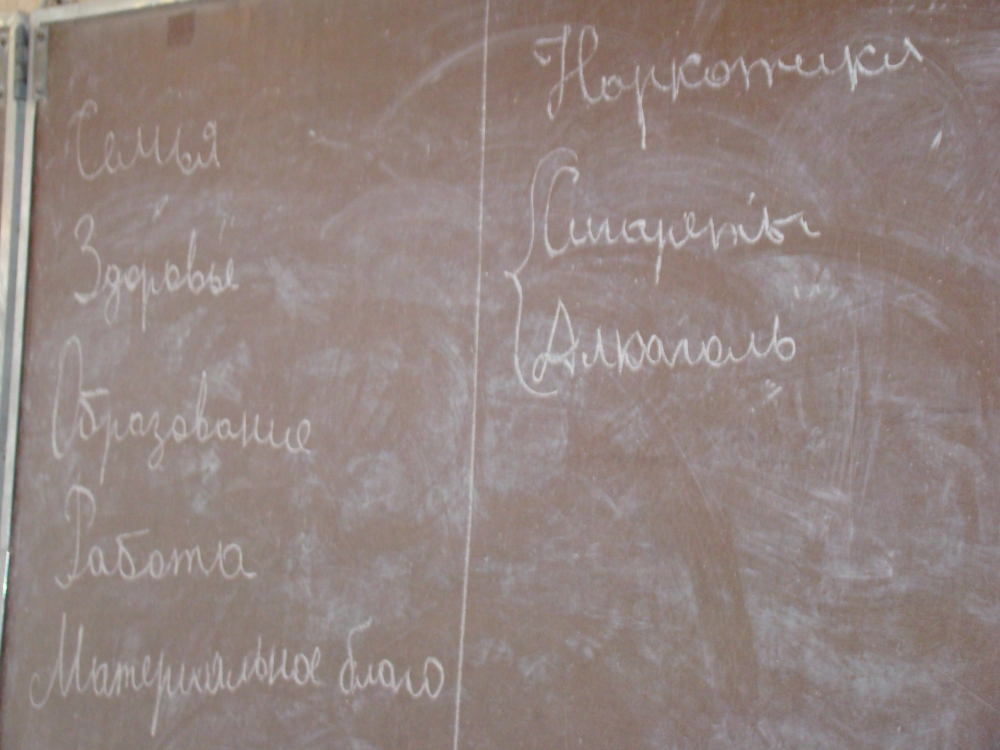 Семья
Здоровье
Образование
Работа
Материальное благо
Наркотики
Сигареты
Алкоголь